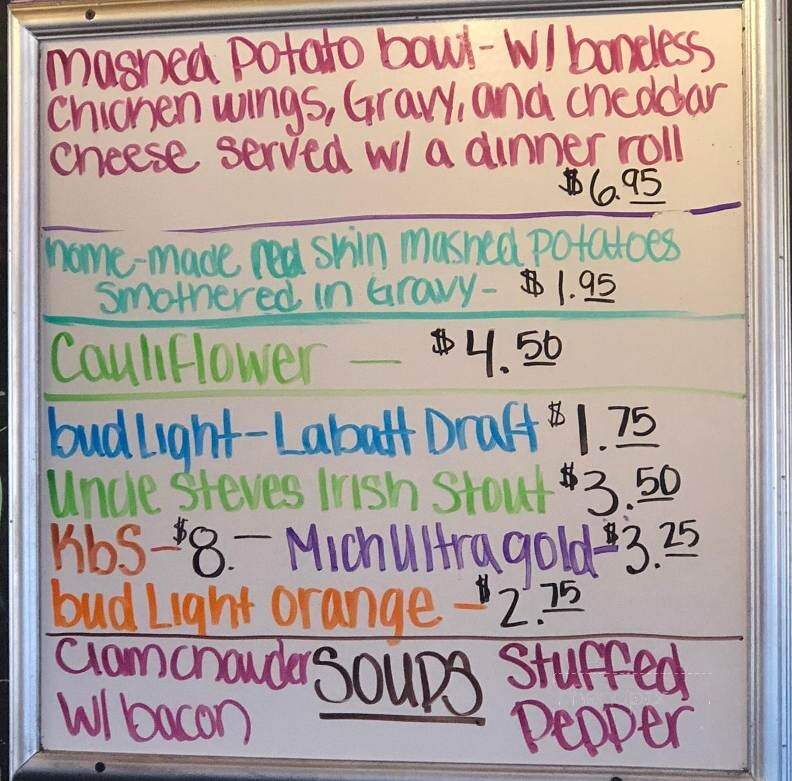 mashed Potato bowl- W/ boneless
Chicken wings, Gravy, and cheddar
Cheese served w/ a dinner roll
$6.95
home-made red skin mashed Potatoes
Smothered in Gravy- $1.95
Cauliflower — $4.50
bud Light-Labatt Draft $1.75
Uncle Steves Irish Stout $3.50
KbS-$8.— Mich Ultra gold-$3.25
bud Light orange -$2.75
Clam chowder SOUPS Stuffed
W/ bacon Pepper